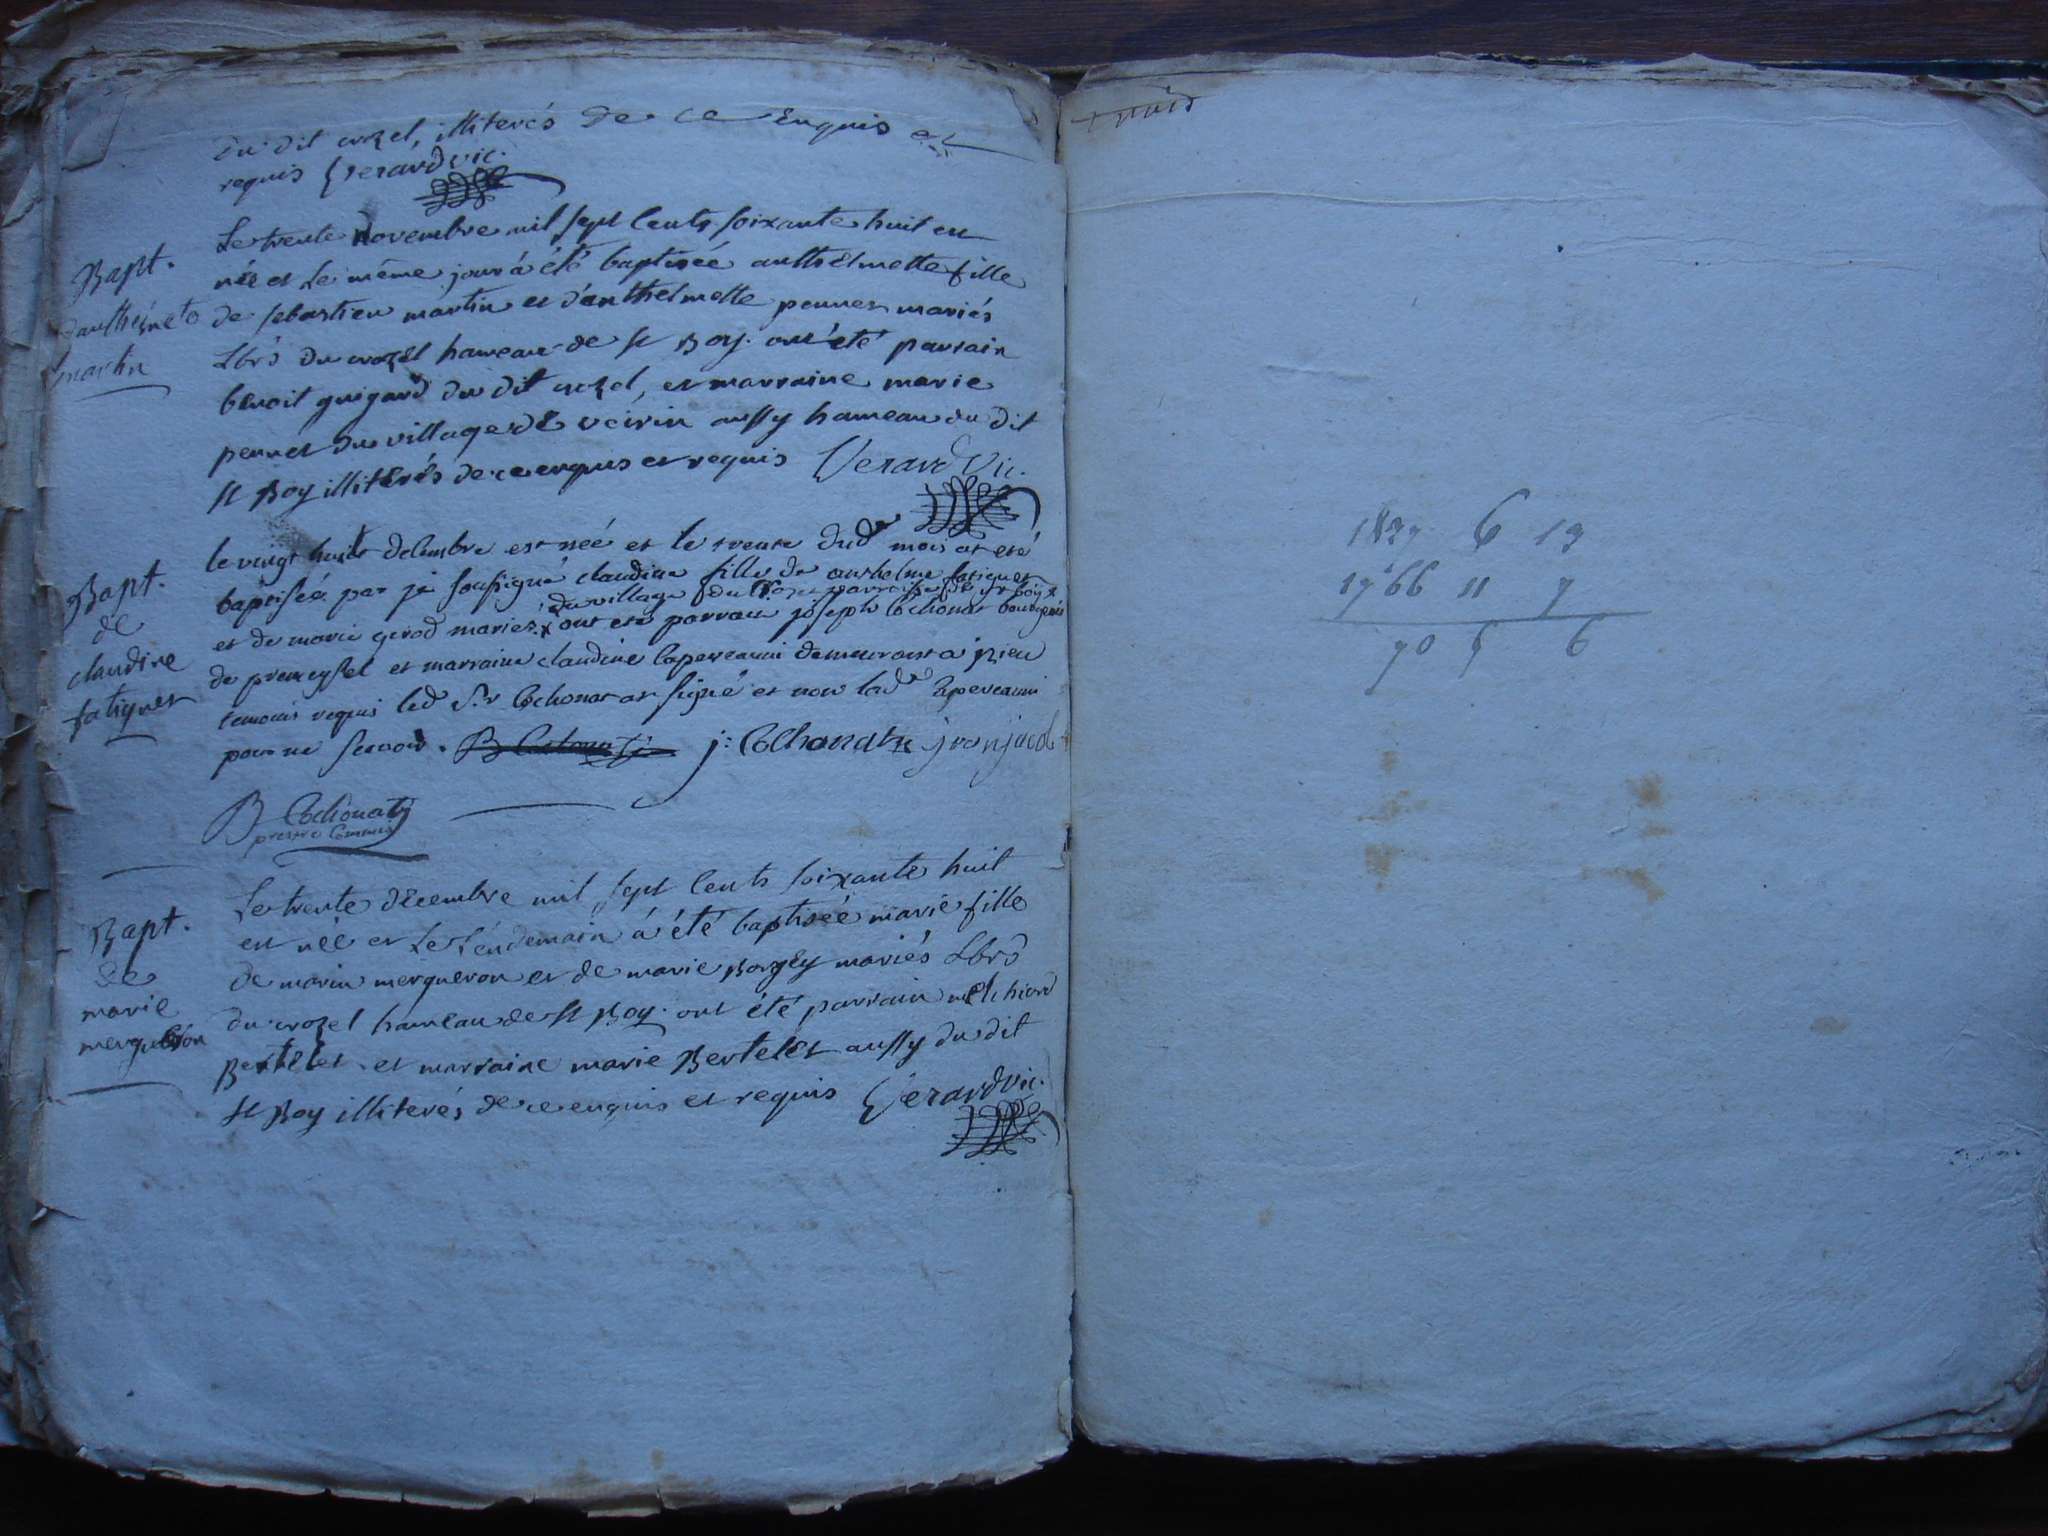 Du dit crozel, illiterés de ce enquis et
requis Gerard vic.
Bapt.
d'anthelmete
martin
Le trente Novembre mil sept cents soixante huit est
née et le même jour à été baptisée anthelmette fille
de sebastien martin et d'anthelmette pennet mariés
Lbrs du crozel hameau de st Boy. ont été parrain
benoit guigard du dit crozel, et marraine marie
pennet du village de veirin aussy hameau du dit
st Boy illiterés de ce enquis et requis Gerard Vic.
Bapt.
de
claudine
fatiguet
le vingt huit decembre est née et le trente dud mois at eté
baptisée par je soussigné claudine fille de anthelme fatiguet
du village du paroisse de st boy x
et de marie girod mariés x ont eté parrain joseph Cochonat bourgeois
de premeyssel et marraine claudine demeurant a
temoins requis led Sr Cochonat at signé et non lad
pour ne scavoir. j: Cochonat
B Cochonat
prestre Commis
Bapt.
de
marie
merqueron
Le trente décembre mil sept cents soixante huit
est née et Le Lendemain à été baptisée marie fille
de marin merqueron et de marie Borgey mariés Lbrs
du crozel hameau de st Boy. ont été parrain melchiord
Bertelet et marraine marie Bertelet aussy du dit
st Boy illiterés de ce enquis et requis Gerard vic.
1837 6 13
1766 11 7
70 5 6